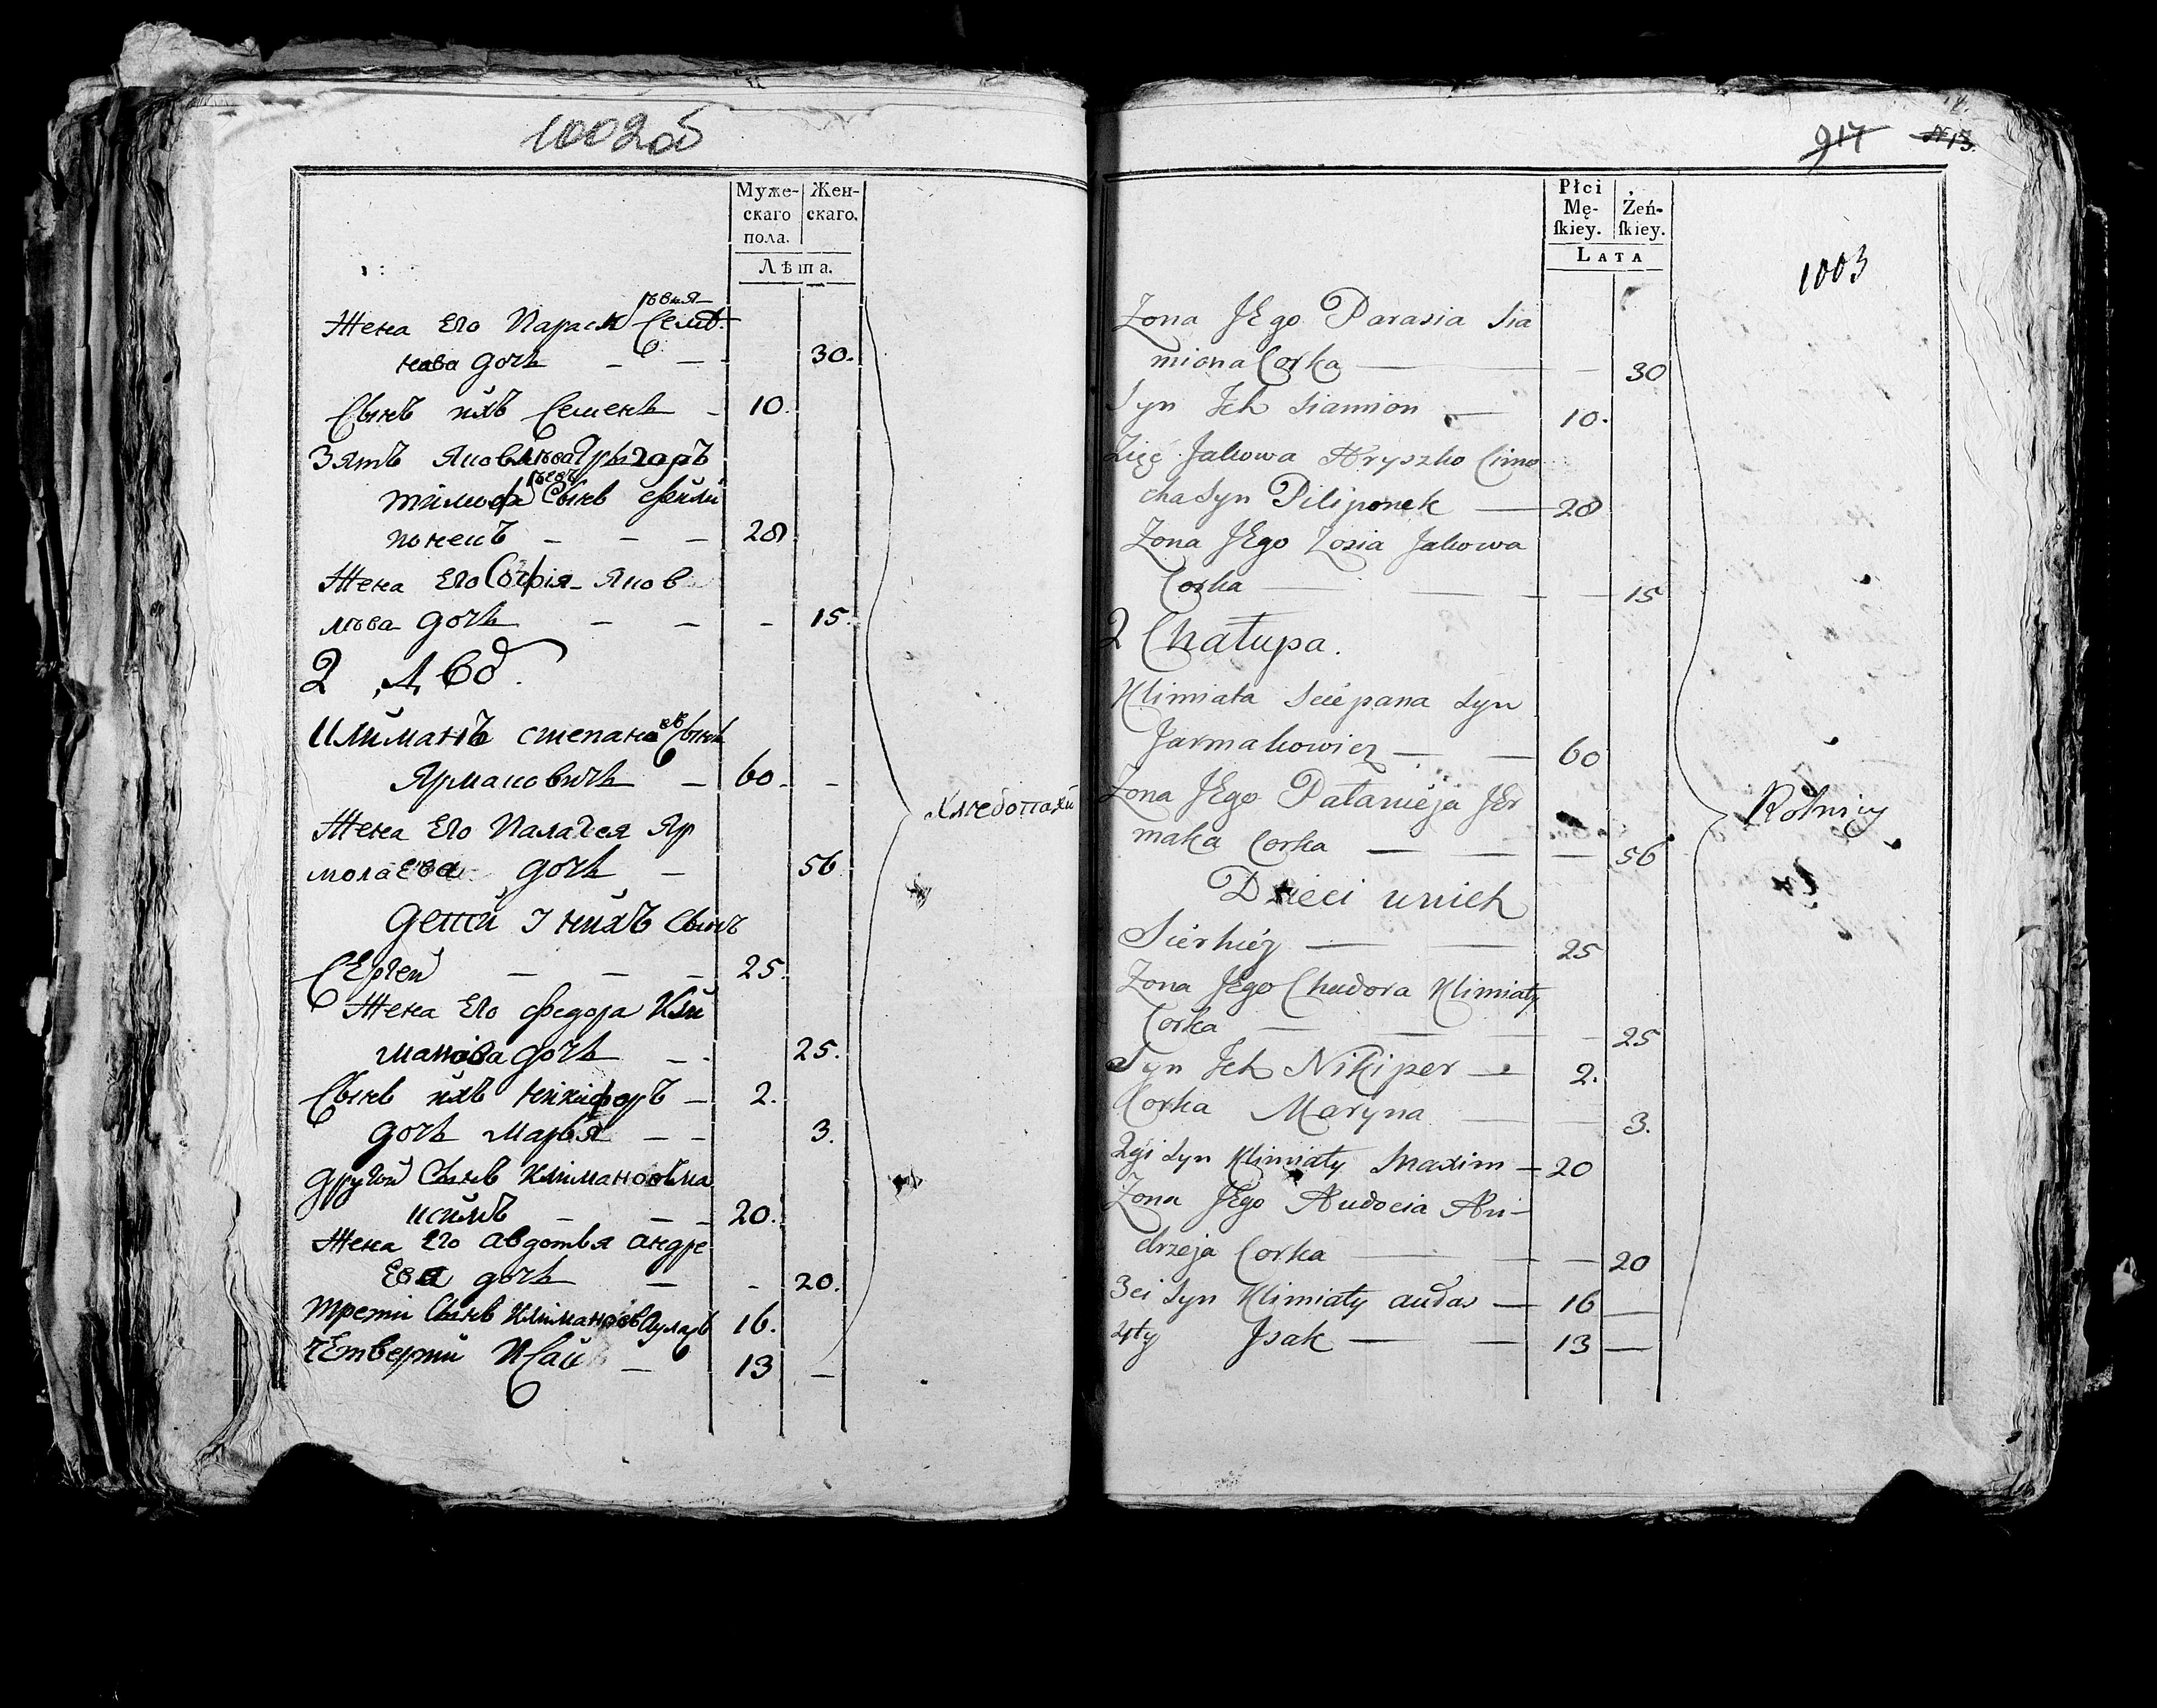 1002об
Муже- Жен-
скаго скаго.
пола.
Лѣта.
Жена Его Параск Семѣ
нова дочь 30.
Сынъ ихъ Семенъ 10.
Зять Яковлева Грыгоръ
Тимофѣевъ Сынъ Фили
поненъ 28
Жена Его Софія Яков
лѣва дочь 15.
2 Двд.
Климанъ степановъ Сынъ
Ярмаковичъ 60.
Жена Его Палагея Яр
молаева дочь 56
Дети у нихъ Сынъ
СЕргей 25.
Жена Его федора Кли
манова дочь 25.
Сынъ ихъ никифоръ 2.
дочь Марья 3.
другой Сынъ Климановъ Ма
ксимъ 20.
Жена Его авдотья андре
Ева дочь 20.
третй Сынъ Климановъ 16.
чЕтвертй Исай 13
Хлебопахи
917 N 13.
Płci Żeń-
Mę- ſkiey.
ſkiey.
LATA
1003
Zona JEgo Parasia Sia
miona Corka 30
Syn Ich Siamion 10.
Zięć Jakowa Hryszko Cimo
cha Syn Piliponek 28
Zona JEgo Zosia Jakowa
Corka 15
2 Chałupa.
Klimiata Sciepana Syn
Jarmakowicz 60
Zona JEgo Pałanieja Jer
maka Corka 56
Dzieci unich
Sierhiéy 25
Zona JEgo Chudora Klimiaty
Corka 25
Syn Ich Nikiper 2.
Corka Maryna 3.
2gi Syn Klimiaty Maxim 20
Zona JEgo Audocia An-
drzeja Corka 20
3ci Syn Klimiaty audas 16
4ty Jsak 13
Rolnicy